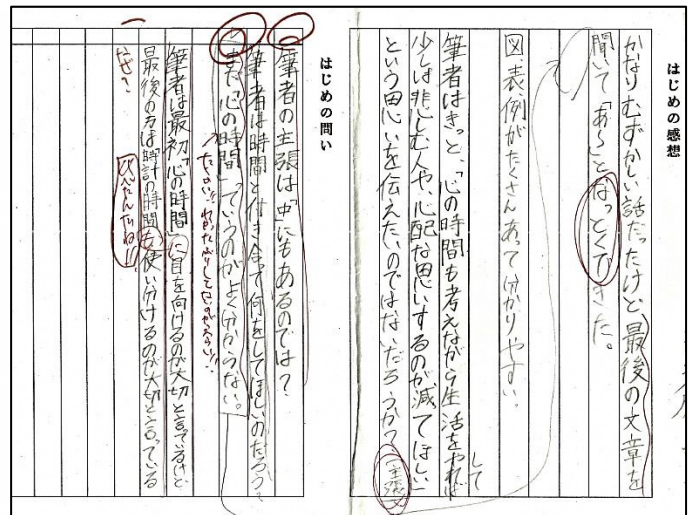 はじめの感想
かなりむずかしい話だったけど、最後の文章を
聞いて「あ〜」となっとくできた。
図、表、例がたくさんあって分かりやすい。
筆者はきっと、「心の時間も考えながら生活をして
少しは悲しむ人や、心配な思いするのが減てほしい」
という思いを伝えたいのではないだろうか?
主張
はじめの問い
筆者の主張は「中」にもあるのでは?
筆者は時間と付き合て何をしてほしいのだろう?
また「心の時間」っていうのがよく分からない。
筆者は最初「心の時間」に目を向けるのが大切と言ているけど
最後の方は「時計の時間」も使い分けるのが大切と言っている
なぜ?